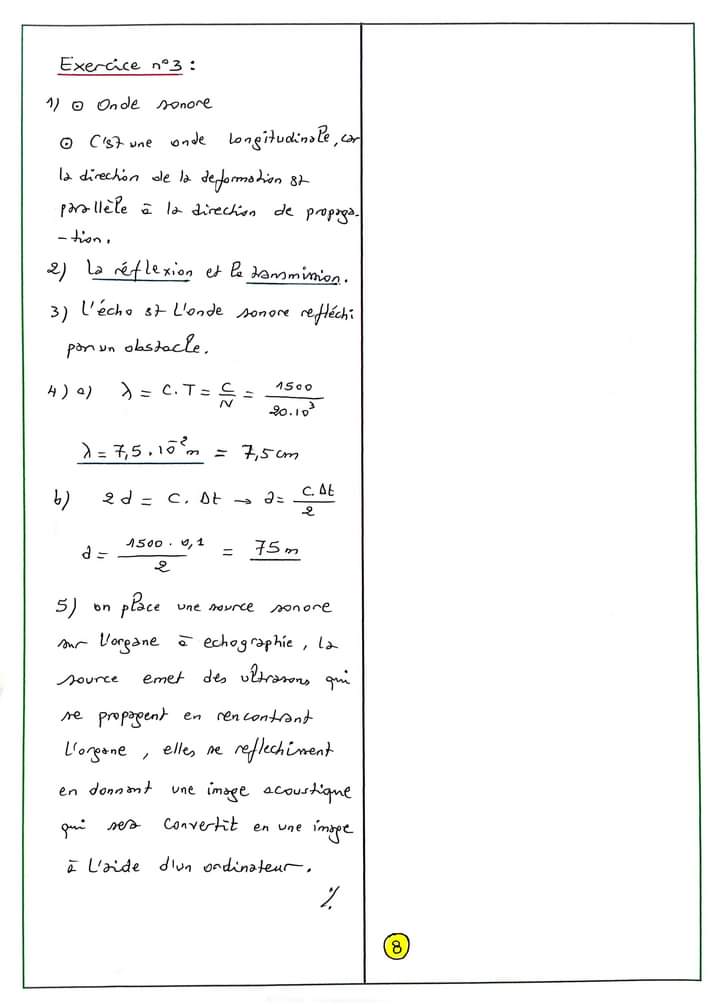 Exercice n°3 :
1) ⊙ Onde sonore
⊙ C'st une onde longitudinale, car
la direction de la deformation st
parallèle à la direction de propaga-
-tion.
2) la réflexion et la transmission.
3) L'écho st L'onde sonore refléchi
par un obstacle.
4) a) λ = C.T = C/N = 1500/20.10³
λ = 7,5.10⁻² m = 7,5 cm
b) 2d = C. Δt → d = C. Δt/2
d = 1500 . 0,1/2 = 75 m
5) on place une source sonore
sur l'organe à echographie, la
source emet des ultrasons qui
se propagent en rencontrant
L'organe, elles se reflechissent
en donnant une image acoustique
qui sera convertit en une image
à L'aide d'un ordinateur.
8